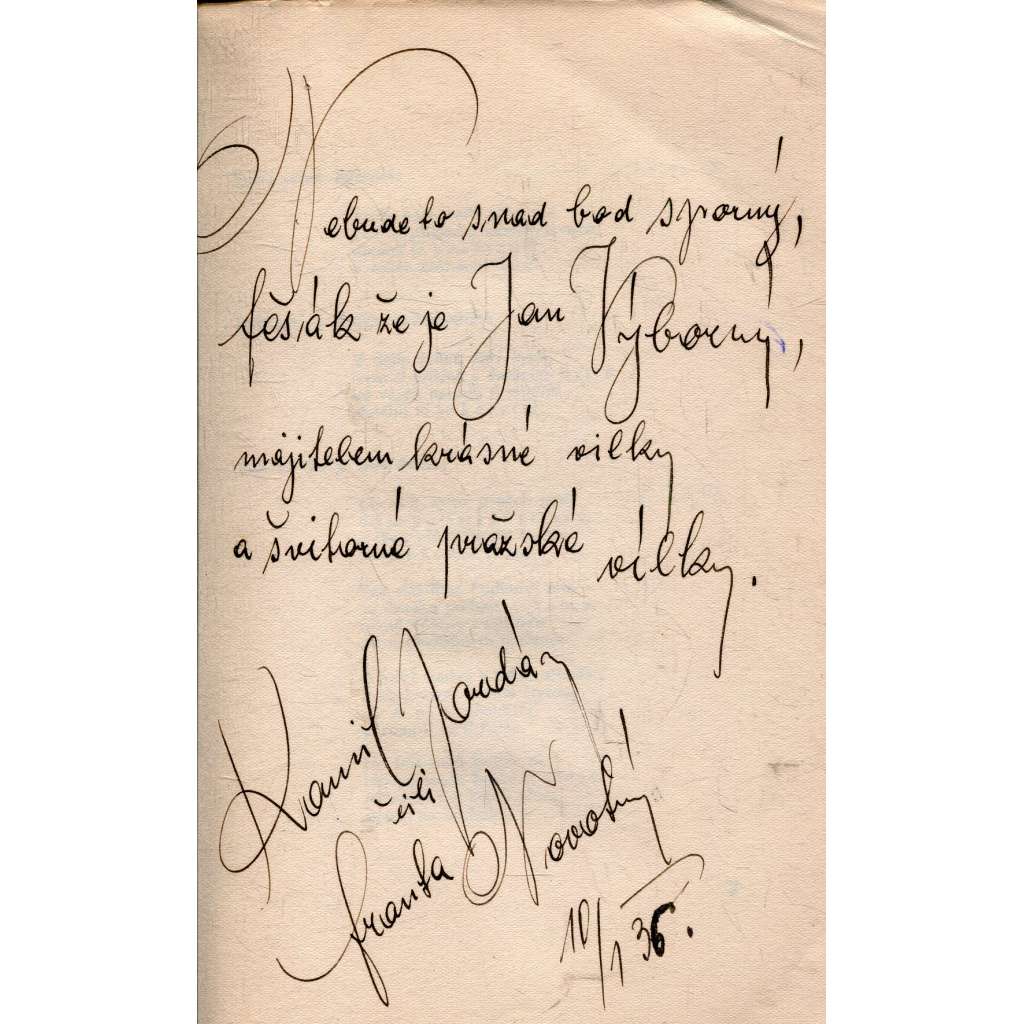 Nebude to snad bod sporný,
fešák že je Jan Výborný,
majitelem krásné vilky
a švitorné pražské vilky.
Kamil
čili
Franta Novotný
10/1 36.